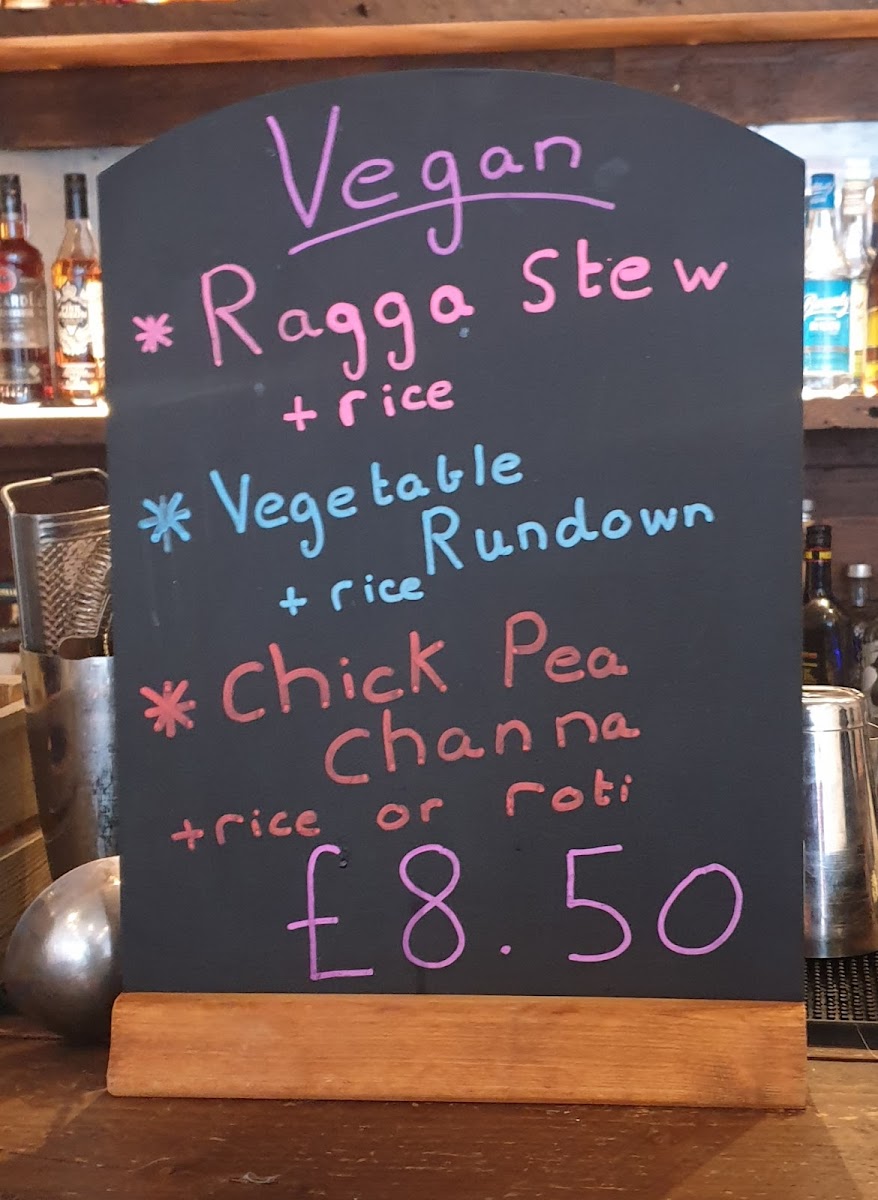 Vegan
* Ragga Stew
+ rice
* Vegetable
Rundown
+ rice
* Chick Pea
Channa
+ rice or roti
£8.50